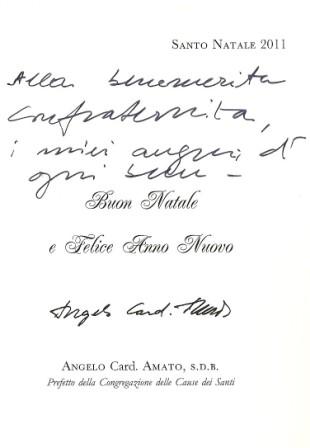 SANTO NATALE 2011
Alla benemerita
confraternita,
i miei auguri d'
ogni bene -
Buon Natale
e Felice Anno Nuovo
Angelo Card. Amato
ANGELO Card. AMATO, S.D.B.
Prefetto della Congregazione delle Cause dei Santi